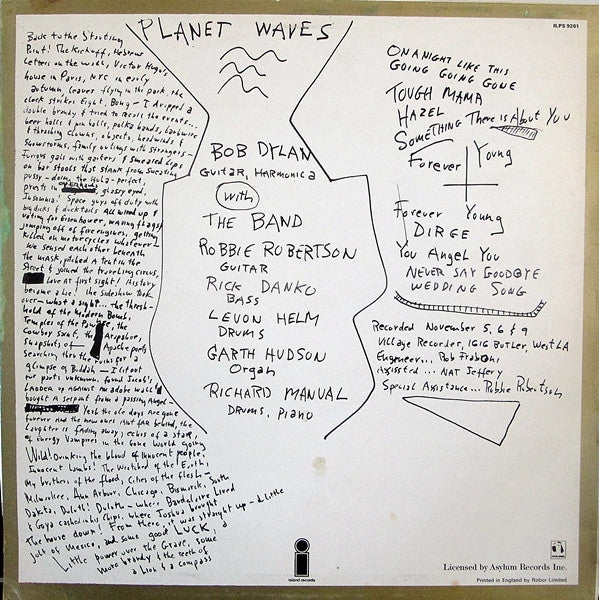 ILPS 9261
PLANET WAVES
Back to the Starting
Point! The Kickoff, Hebrew
Letters on the wall, Victor Hugo's
house in Paris, NYC in early
autumn, leaves flying in the park, the
clock strikes Eight, Bong — I dropped a
double brandy & tried to recall the events...
beer halls & pin balls, polka bands, barbwire
& thrashing clowns, objects, headwinds &
snowstorms, family outings with strangers —
Furious gals with garters & smeared lips
on bar stools that stank from sweating
pussy — doing the Hula — perfect,
priests in overhauls, glassy eyed,
Insomnia! Space guys off duty with
big dicks & ducktails All wired up &
voting for Eisenhower, waving flags &
jumping off of fire engines, getting
killed on motorcycles whatever —
We sensed each other beneath
the mask, pitched a tent in the
Street & joined the traveling circus,
Love at first sight! History
became a lie! the sideshow took
over — what a sight... the thresh-
hold of the Modern Bomb,
Temples of the Pawnee, the
Cowboy Saint, the Arapahoe,
snapshots of — Apache poets
searching thru the ruins for a
glimpse of Buddah — I lit out
for parts unknown, found Jacob's
ladder up against an adobe wall &
bought a serpent from a passing angel —
Yeah the old days are gone
forever and the new ones ant far behind, the
laughter is fading away, echos of a star,
of Energy Vampires in the Gone World going
Wild! Drinking the blood of innocent people,
Innocent lambs! The Wretched of the Earth,
My brothers of the flood, Cities of the flesh —
Milwaukee, Ann Arbor, Chicago, Bismarck, South
Dakota, Duluth! Duluth — where Baudelaire Lived
& Goya cashed in his Chips, where Joshua brought
the house down! From there, it was straight up — a little
jolt of Mexico, and some good LUCK, a
Little power over the Grave, some
more brandy & the teeth of
a lion & a compass
BOB DYLAN
GUITAR, HARMONICA
with
THE BAND
ROBBIE ROBERTSON
GUITAR
RICK DANKO
BASS
LEVON HELM
DRUMS
GARTH HUDSON
Organ
RICHARD MANUAL
DRUMS, PIANO
ON A NIGHT LIKE THIS
GOING GOING GONE
TOUGH MAMA
HAZEL
SOMETHING There is About You
Forever Young
Forever Young
DIRGE
You Angel You
NEVER SAY GOODBYE
WEDDING SONG
Recorded November 5, 6 & 9
Village Recorder, 1616 Butler, West LA
Engineer... Rob Fraboni
Assisted... NAT Jeffery
Special Assistance... Robbie Robertson
i
island records
Licensed by Asylum Records Inc.
Printed in England by Robor Limited